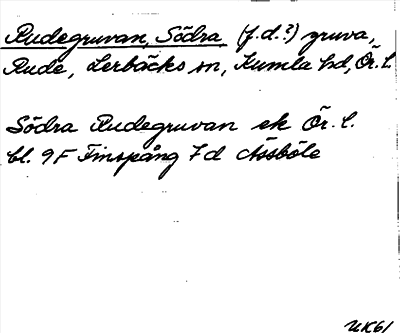 Rudegruvan, Södra (f.d.?) gruva,
Rude, Lerbäcks sn, Kumla hd, Ör. l.
Södra Rudegruvan ek Ör. l.
bl. 9F Finspång 7d Åssböle
UK61